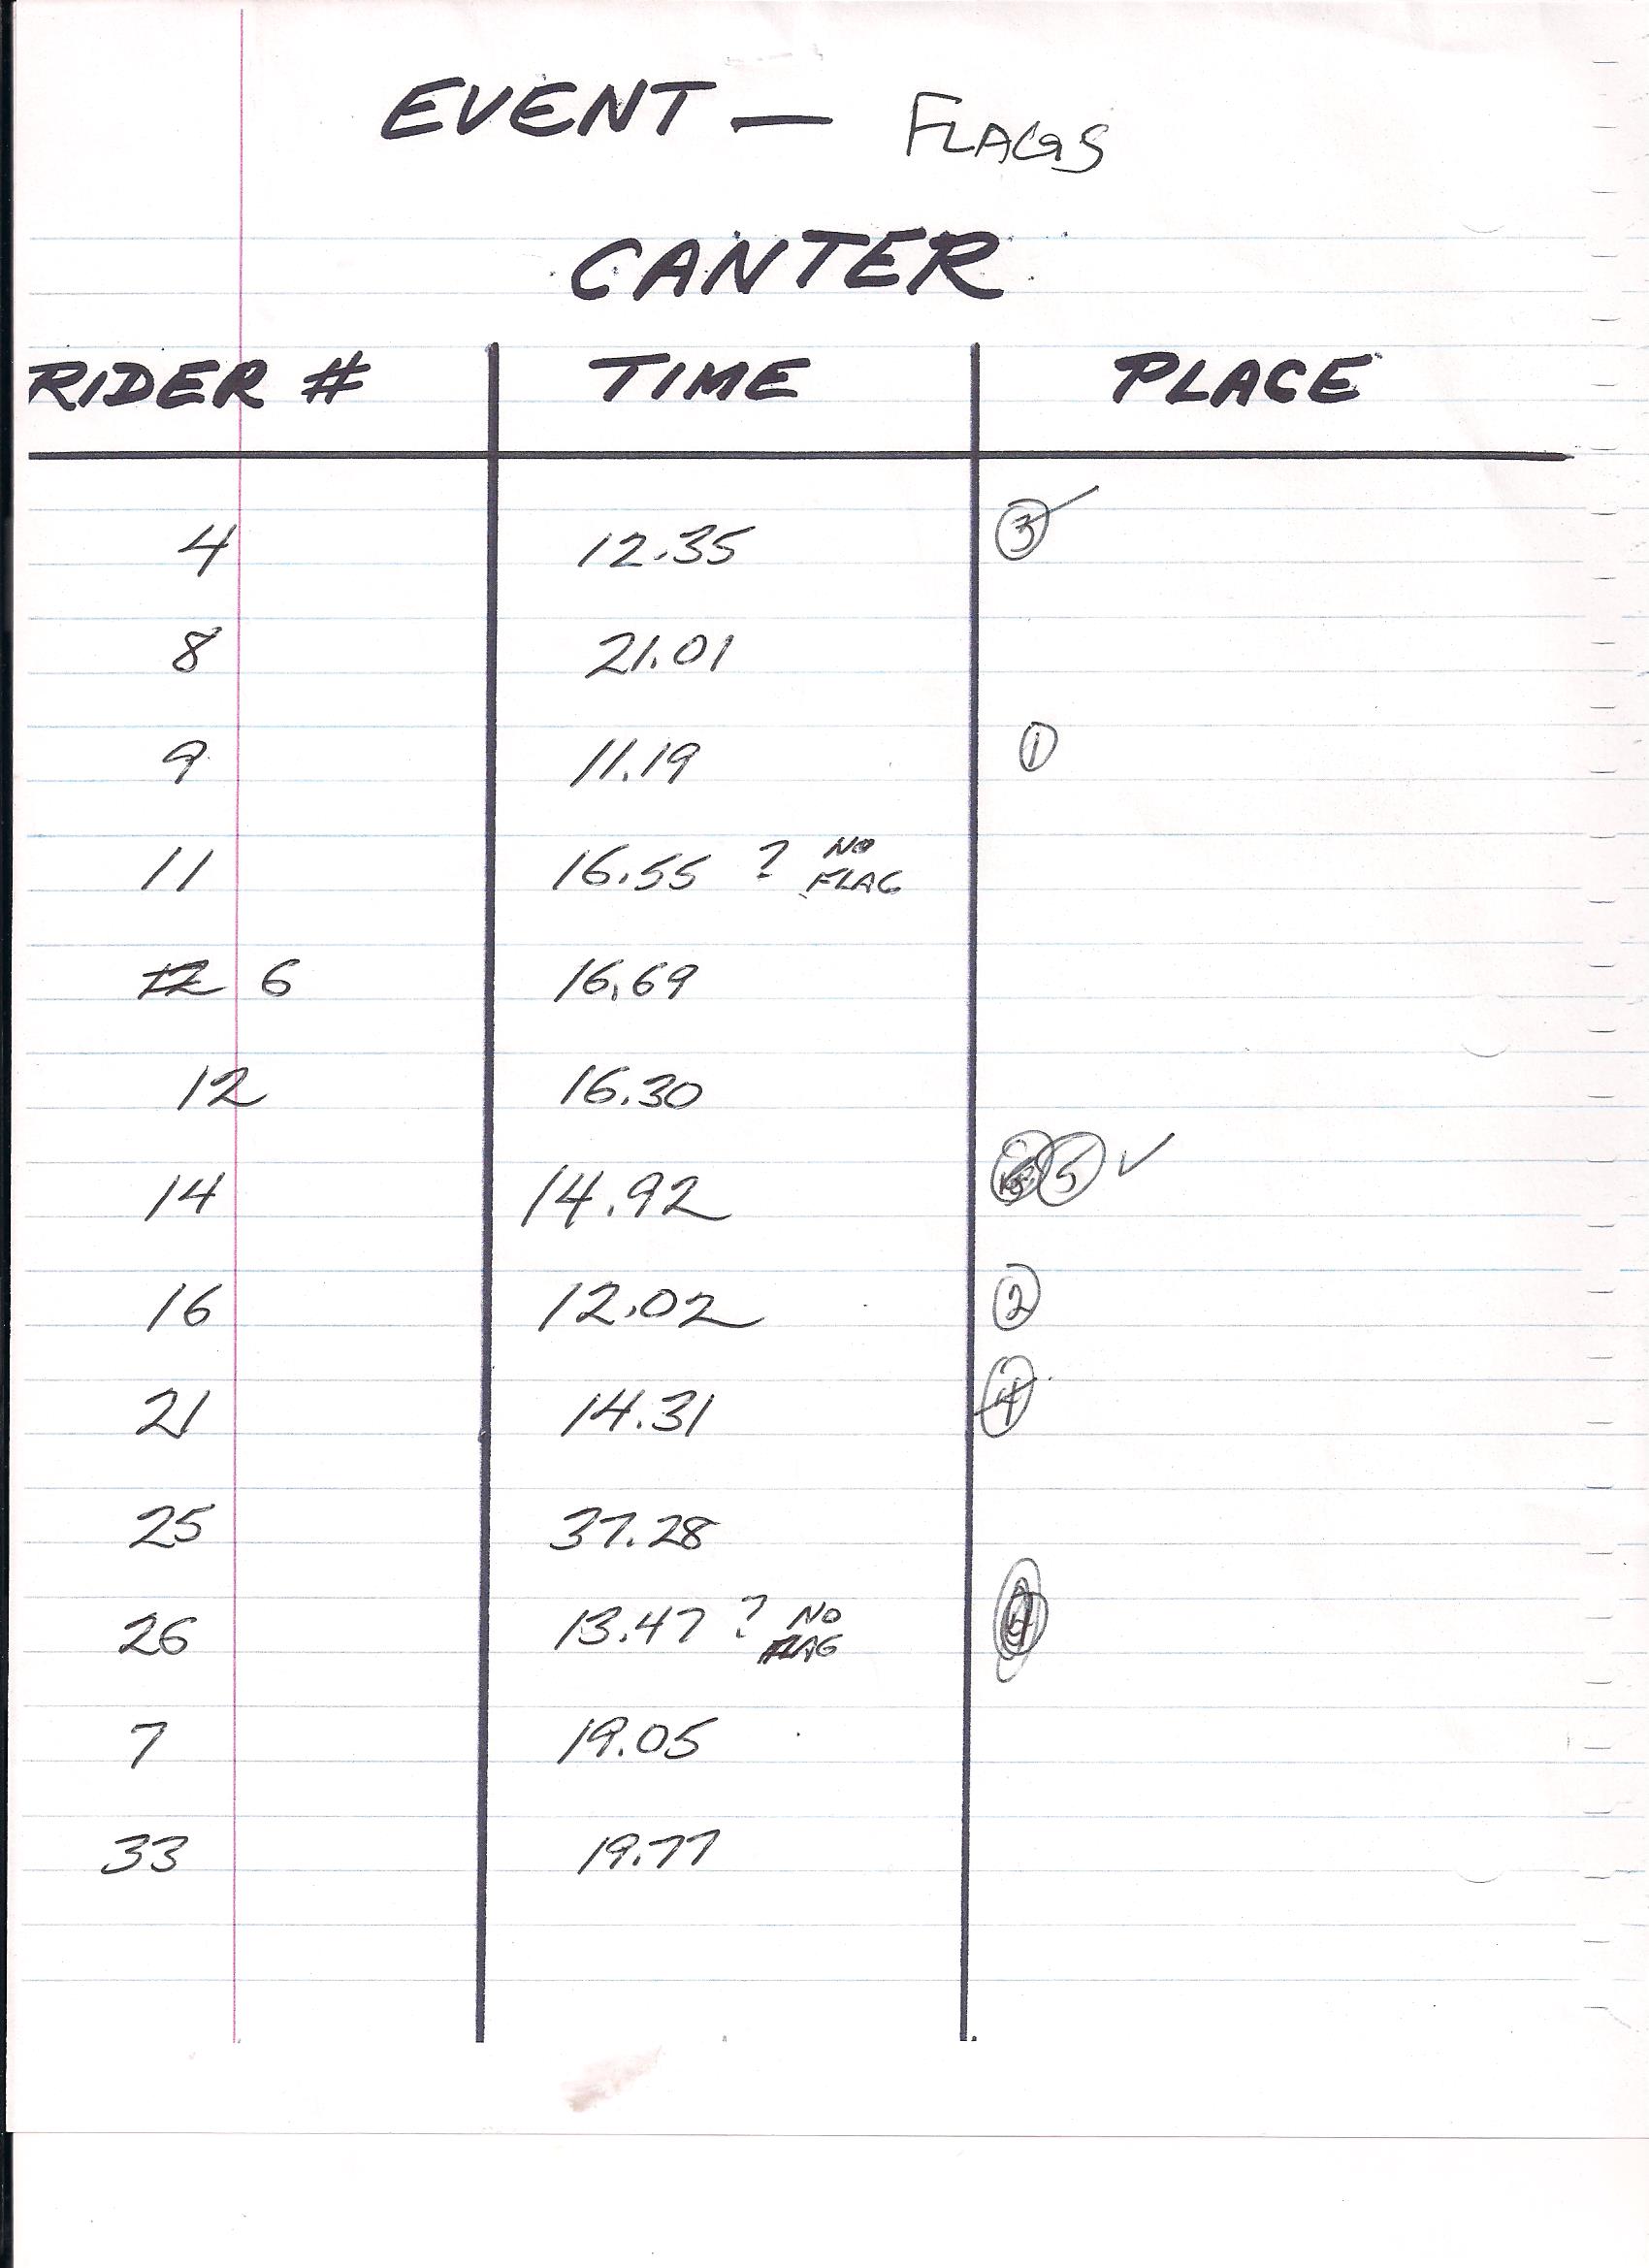 EVENT — FLAGS
CANTER
RIDER # TIME PLACE
4 12.35 3
8 21.01
9 11.19 1
11 16.55 ? NO FLAG
12 6 16.69
12 16.30
14 14.92 5 ✓
16 12.02 2
21 14.31 4
25 37.28
26 13.47 ? NO FLAG
7 19.05
33 19.77